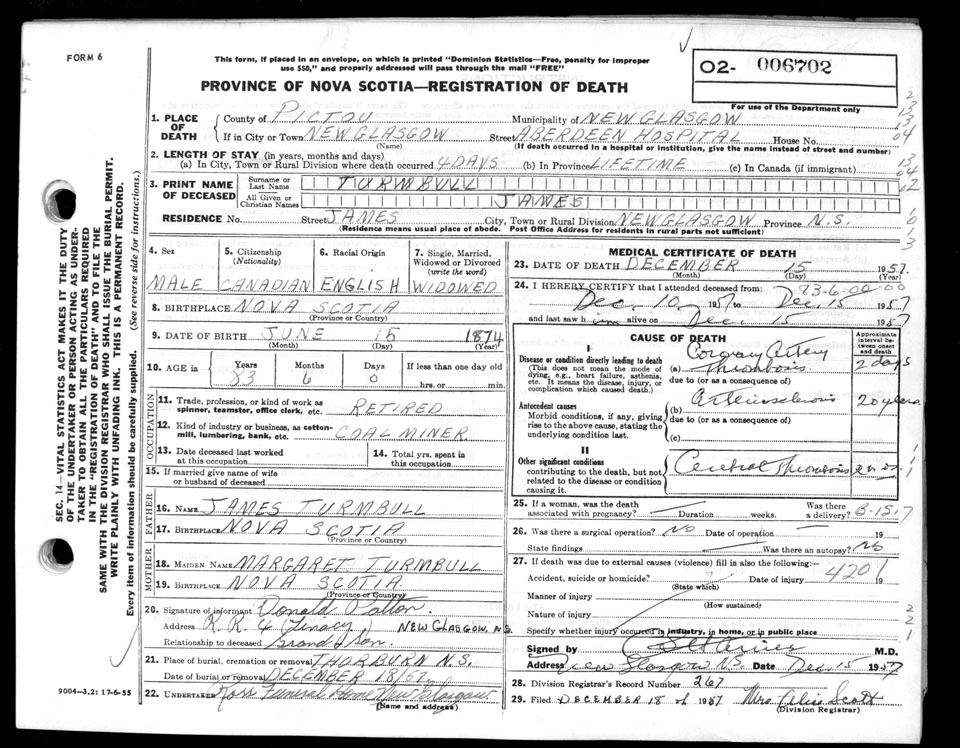 FORM 6
This form, if placed in an envelope, on which is printed "Dominion Statistics—Free, penalty for improper
use $50," and properly addressed will pass through the mail "FREE"
02- 006702
PROVINCE OF NOVA SCOTIA—REGISTRATION OF DEATH
For use of the Department only
1. PLACE OF DEATH County of PICTOU Municipality of NEW GLASGOW
If in City or Town NEW GLASGOW Street ABERDEEN HOSPITAL House No.
(Name) (If death occurred in a hospital or institution, give the name instead of street and number)
2. LENGTH OF STAY (in years, months and days)
(a) In City, Town or Rural Division where death occurred 4 DAYS (b) In Province LIFETIME (c) In Canada (if immigrant)
3. PRINT NAME OF DECEASED Surname or Last Name TURMBULL
All Given or Christian Names JAMES
RESIDENCE No. Street JAMES City, Town or Rural Division NEW GLASGOW Province N.S.
(Residence means usual place of abode. Post Office Address for residents in rural parts not sufficient)
4. Sex 5. Citizenship (Nationality) 6. Racial Origin 7. Single, Married, Widowed or Divorced (write the word)
MALE CANADIAN ENGLISH WIDOWED
8. BIRTHPLACE NOVA SCOTIA
(Province or Country)
9. DATE OF BIRTH JUNE 15 1874
(Month) (Day) (Year)
10. AGE in Years Months Days If less than one day old
83 6 0 hrs. or min.
OCCUPATION
11. Trade, profession, or kind of work as spinner, teamster, office clerk, etc. RETIRED
12. Kind of industry or business, as cotton-mill, lumbering, bank, etc. COAL MINER
13. Date deceased last worked at this occupation 14. Total yrs. spent in this occupation
15. If married give name of wife or husband of deceased
FATHER
16. NAME JAMES TURMBULL
17. BIRTHPLACE NOVA SCOTIA
(Province or Country)
MOTHER
18. MAIDEN NAME MARGARET TURMBULL
19. BIRTHPLACE NOVA SCOTIA
(Province or Country)
20. Signature of informant Donald Patton.
Address R.R. 4 (Linacy.) NEW GLASGOW, N.S.
Relationship to deceased Grand Son.
21. Place of burial, cremation or removal THORBURN N.S.
Date of burial or removal DECEMBER 18/57
22. UNDERTAKER Ross Funeral Home New Glasgow
(Name and address)
MEDICAL CERTIFICATE OF DEATH
23. DATE OF DEATH DECEMBER 15 1957
(Month) (Day)
24. I HEREBY CERTIFY that I attended deceased from: 83-6-00-00
Dec. 10 1957 to Dec. 15 1957
and last saw him alive on Dec 15 1957
CAUSE OF DEATH
Approximate interval between onset and death
I
Disease or condition directly leading to death
(This does not mean the mode of dying, e.g., heart failure, asthenia, etc. It means the disease, injury, or complication which caused death.)
(a) Coronary Artery Thrombosis 2 days
due to (or as a consequence of)
Antecedent causes
Morbid conditions, if any, giving rise to the above cause, stating the underlying condition last.
(b) Arteriosclerosis 20 years
due to (or as a consequence of)
(c)
II
Other significant conditions
contributing to the death, but not related to the disease or condition causing it.
Cerebral Thrombosis
25. If a woman, was the death associated with pregnancy? Duration weeks. Was there a delivery?
26. Was there a surgical operation? No Date of operation 19
State findings Was there an autopsy? No
27. If death was due to external causes (violence) fill in also the following:
Accident, suicide or homicide? Date of injury 19
(State which)
4201
Manner of injury
(How sustained)
Nature of injury
Specify whether injury occurred in industry, in home, or in public place
Signed by M.D.
Address New Glasgow N.S. Date Dec. 15 1957
28. Division Registrar's Record Number 267
29. Filed DECEMBER 18 of 1957 Mrs Alice Scott
(Division Registrar)
SEC. 14—VITAL STATISTICS ACT MAKES IT THE DUTY
OF THE UNDERTAKER OR PERSON ACTING AS UNDER-
TAKER TO OBTAIN ALL THE PARTICULARS REQUIRED
IN THE "REGISTRATION OF DEATH" AND TO FILE THE
SAME WITH THE DIVISION REGISTRAR WHO SHALL ISSUE THE BURIAL PERMIT.
WRITE PLAINLY WITH UNFADING INK. THIS IS A PERMANENT RECORD.
Every item of information should be carefully supplied. (See reverse side for instructions.)
9004—3.2: 17-6-55